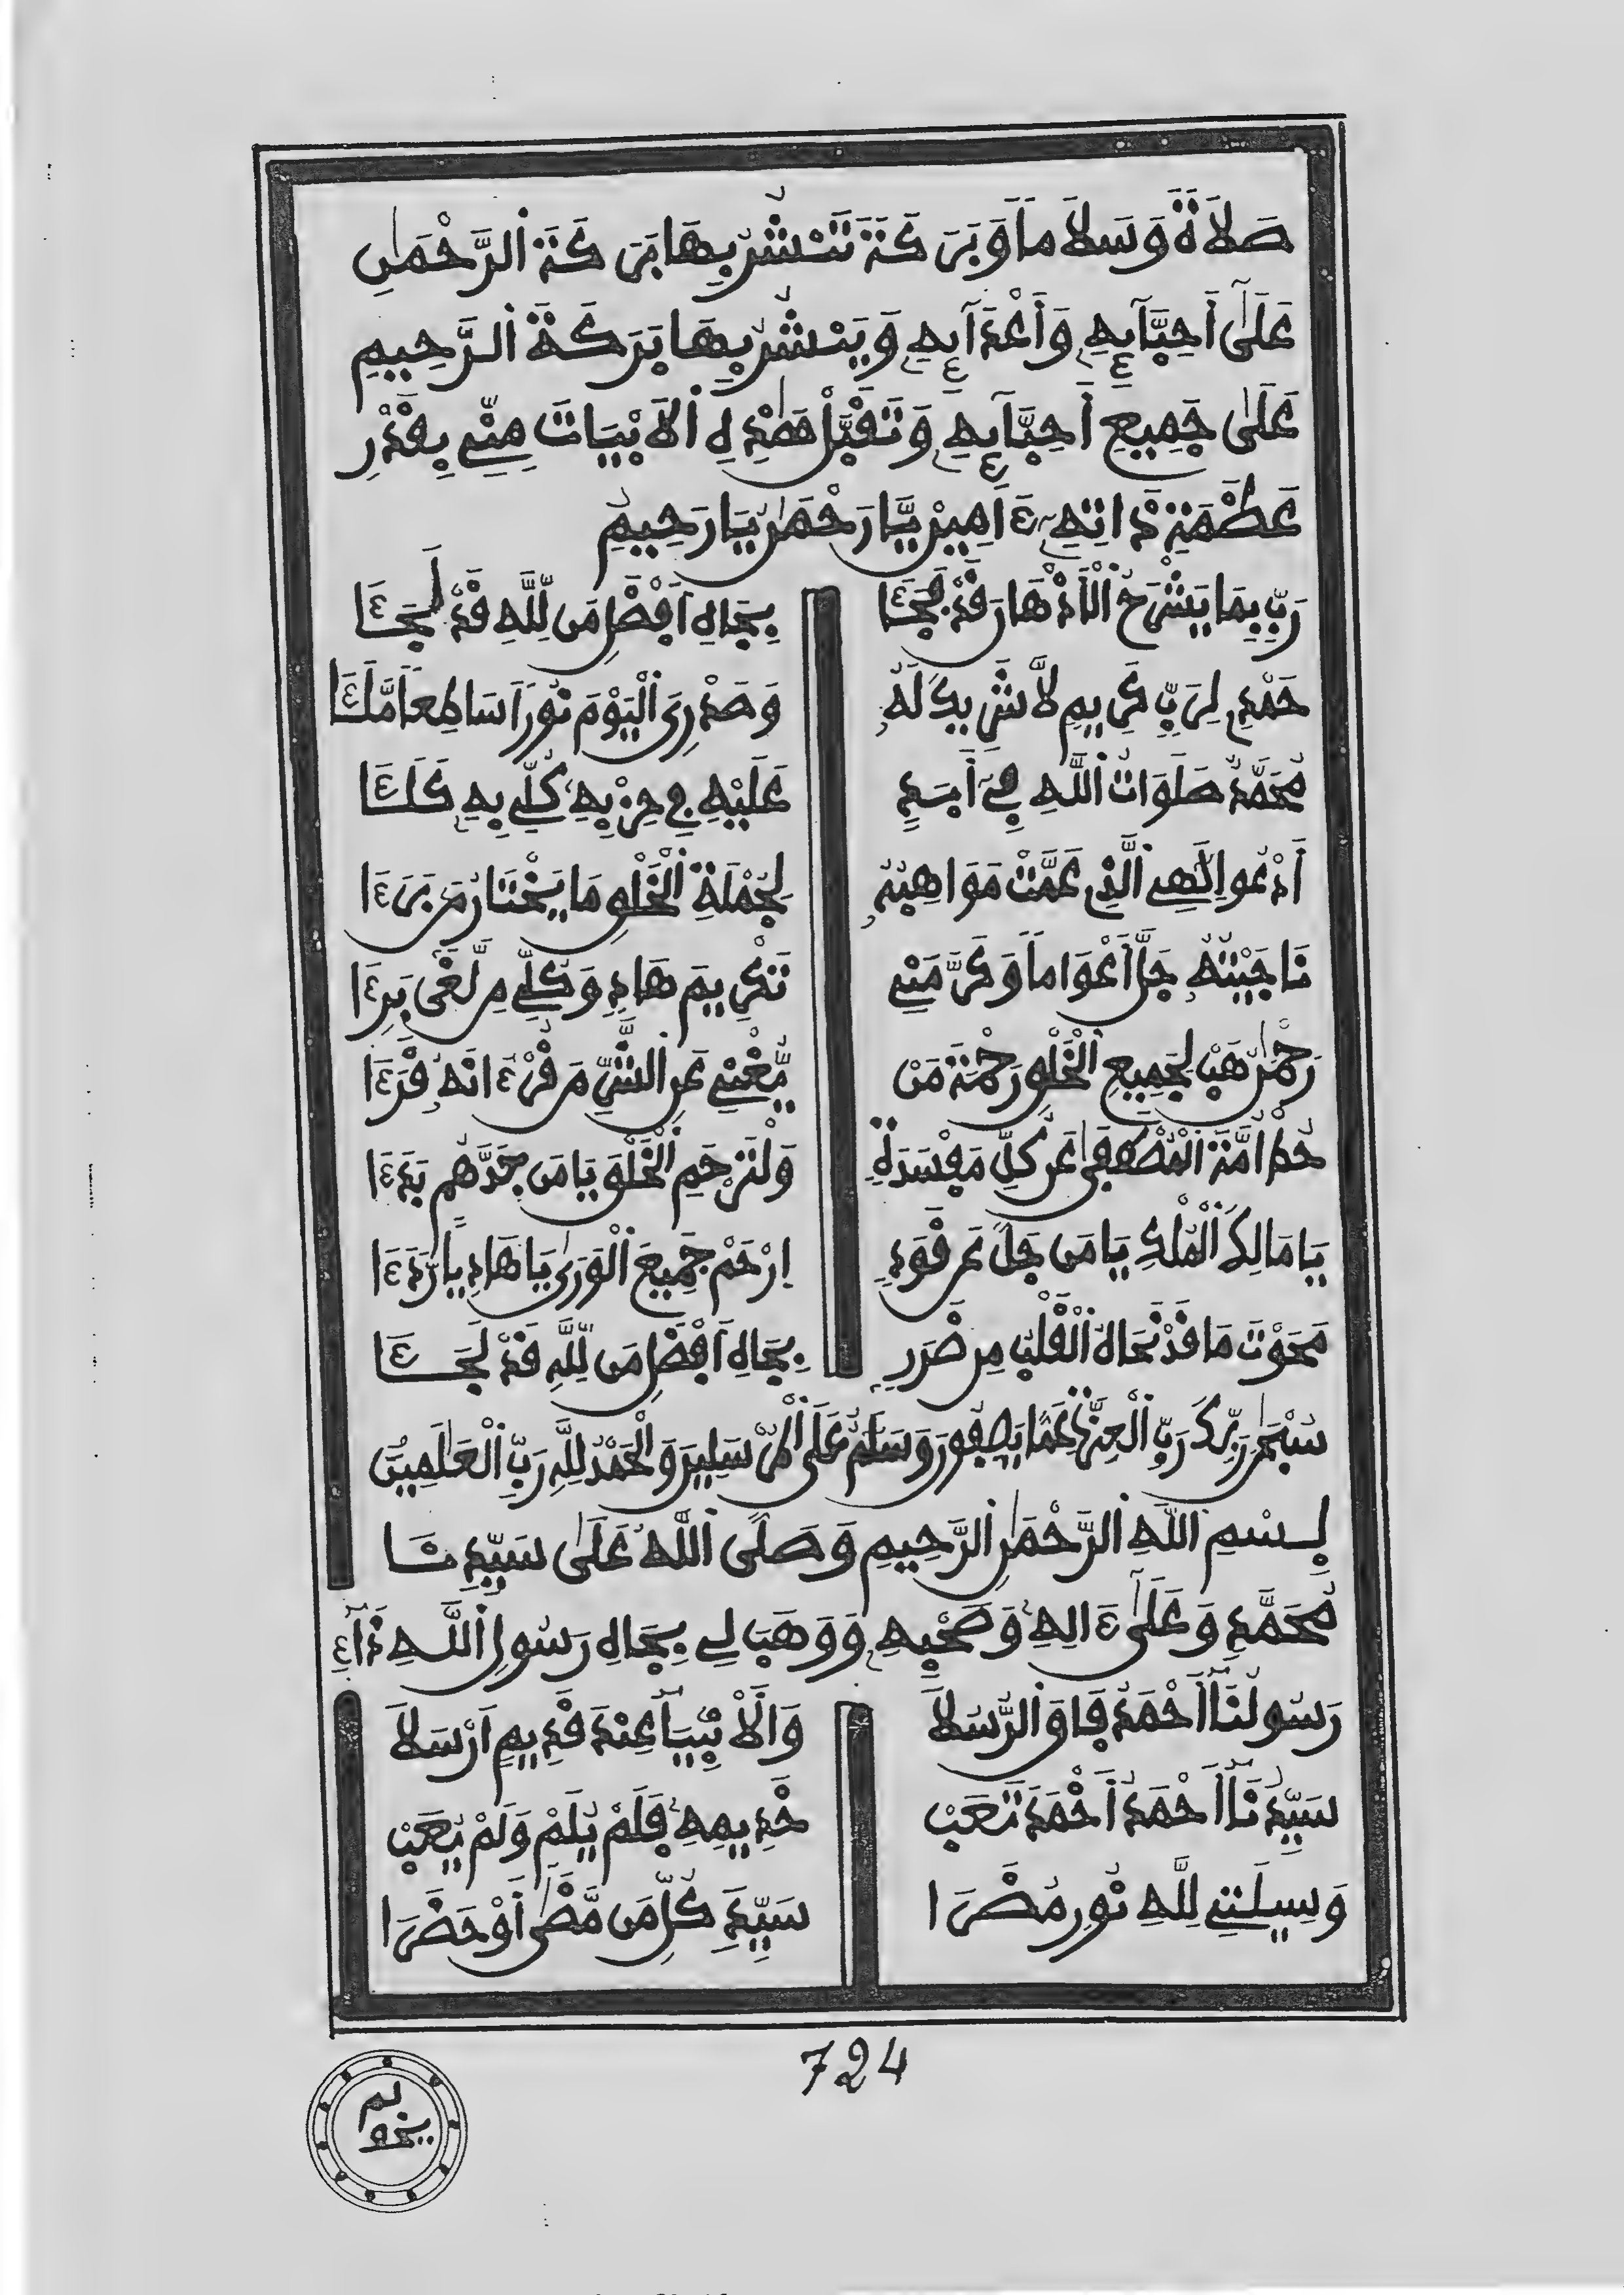 صَلَاةً وَسَلَامًا وَبَرَكَةً تَنْشُرُ بِهَا بَرَكَةَ الرَّحْمَٰنِ
عَلَىٰ أَحِبَّآئِهِ وَأَعْدَآئِهِ وَيَنْشُرُ بِهَا بَرَكَةَ الرَّحِيمِ
عَلَىٰ جَمِيعِ أَحِبَّآئِهِ وَتَقَبَّلْ هَٰذِهِ الْأَبْيَاتَ مِنِّي بِقَدْرِ
عَظَمَةِ ذَاتِهِ ءَامِينْ يَا رَحْمَٰنُ يَا رَحِيمُ
رَبِّ بِمَا يَشْرَحُ بِجَاهِ أَفْضَلِ مَن لِلَّهِ قَدْ لَجَئَا
حَمْدِي لِرَبٍّ كَرِيمٍ لَا شَرِيكَ لَهُ وَصَدْرِيَ الْيَوْمَ نُورًا سَاطِعًا
مُحَمَّدٌ صَلَوَاتُ اللَّهِ فِي أَبَدٍ عَلَيْهِ فِي حِزْبِهِ كُلِّي بِهِ كَلَئَا
أَدْعُو إِلَٰهِي الَّذِي عَمَّتْ مَوَاهِبُهُ لِجُمْلَةِ الْخَلْقِ مَا يَخْتَارُ مَن بَرَءَا
نَاجَيْتُهُ جَلَّ أَعْوَامًا وَكَرَّمَنِي تَكْرِيمَ هَادٍ وَكُلِّي مِن لَغًى بَرِءَا
رَحْمَٰنُ هَبْ لِجَمِيعِ الْخَلْقِ رَحْمَةَ مَنْ يُغْنِي عَنِ الشَّرِّ مَن قُرْءَانَهُ قَرَءَا
حُطْ أُمَّةَ الْمُصْطَفَىٰ عَن كُلِّ مَفْسَدَةٍ وَلْتَرْحَمِ الْخَلْقَ يَا مَن جَدُّهُمْ بَدَءَا
يَا مَالِكَ الْمُلْكِ يَا مَن جَلَّ عَن قَوَدٍ اِرْحَمْ جَمِيعَ الْوَرَىٰ يَا هَادِيًا
مَحَوْتَ مَا قَدْ نَحَاهُ الْقَلْبُ مِن ضَرَرٍ بِجَاهِ أَفْضَلِ مَن لِلَّهِ قَدْ لَجَئَا
سُبْحَٰنَ رَبِّكَ رَبِّ الْعِزَّةِ عَمَّا يَصِفُونَ وَسَلَٰمٌ عَلَى الْمُرْسَلِينَ وَالْحَمْدُ لِلَّهِ رَبِّ الْعَٰلَمِينَ
بِسْمِ اللَّهِ الرَّحْمَٰنِ الرَّحِيمِ وَصَلَّى اللَّهُ عَلَىٰ سَيِّدِنَا
مُحَمَّدٍ وَعَلَىٰ ءَالِهِ وَصَحْبِهِ وَوَهَبَ لِي بِجَاهِ رَسُولِ اللَّهِ
رَسُولُنَا أَحْمَدُ فَاقَ الرُّسُلَا وَالْأَنْبِيَا عِنْدَ قَدِيمٍ أَرْسَلَا
سَيِّدُنَا أَحْمَدُ أَخْمَدَ تَعَبْ خَدِيمِهِ فَلَمْ يُلَمْ وَلَمْ يُعَبْ
وَسِيلَتِي لِلَّهِ نُورُ مُضَرَا سَيِّدُ كُلِّ مَن مَضَىٰ أَوْ حَضَرَا
724